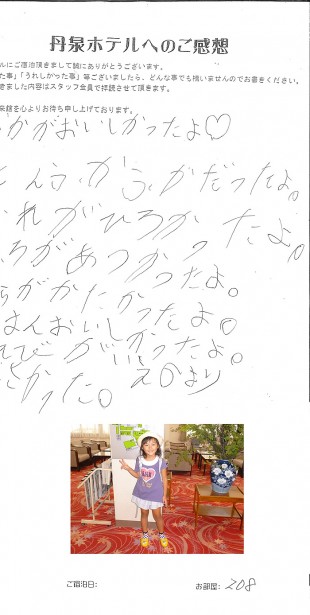 丹泉ホテルへのご感想
ルにご宿泊頂きまして誠にありがとうございます。
た事」「うれしかった事」等ございましたら、どんな事でも構いませんのでお書きください。
きました内容はスタッフ全員で拝読させて頂きます。
来館を心よりお待ち申し上げております。
かがおいしかったよ♡
かだったよ。
れがひろかたよ。
ろがあつかったよ。
がかたかったよ。
はんおいしかったよ。
えびがいかったよ。
かった。
ご宿泊日:
お部屋: 208